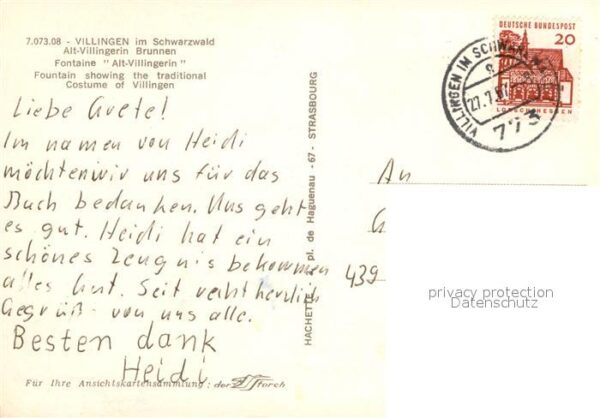 7.073.08 - VILLINGEN im Schwarzwald
Alt-Villingerin Brunnen
Fontaine "Alt-Villingerin"
Fountain showing the traditional
Costume of Villingen
Liebe Grete!
Im namen von Heidi
möchtenwir uns für das
Buch bedanken. Uns geht
es gut. Heidi hat ein
schönes Zeugnis bekommen
alles Gut. Seit recht herzlich
Gegrüß von uns alle.
Besten dank
Heidi
Für Ihre Ansichtskartensammlung: der Storch
HACHETTE pl. de Haguenau -67- STRASBOURG
DEUTSCHE BUNDESPOST
20
LORSCH/HESSEN
VILLINGEN IM SCHWARZWALD
27.7.67
773
An
G
439
privacy protection
Datenschutz